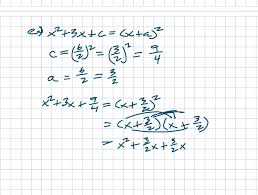 ex) x² + 3x + c = (x + a)²
c = (b/2)² = (3/2)² = 9/4
a = b/2 = 3/2
x² + 3x + 9/4 = (x + 3/2)²
= (x + 3/2)(x + 3/2)
= x² + 3/2x + 3/2x